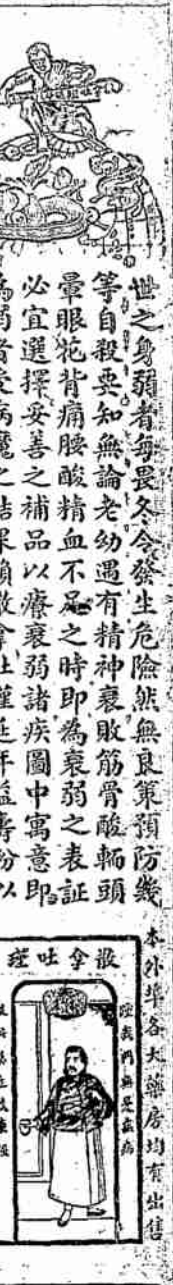 世之身弱者每畏冬令發生危險然無良策預防幾
等自殺要知無論老幼遇有精神衰敗筋骨酸輭頭
暈眼花背痛腰酸精血不足之時即為衰弱之表証
必宜選擇妥善之補品以療衰弱諸疾圖中寓意即
為弱者受病魔之結果賴散拿吐瑾延年益壽粉以
本外埠各大藥房均有出售
散拿吐瑾